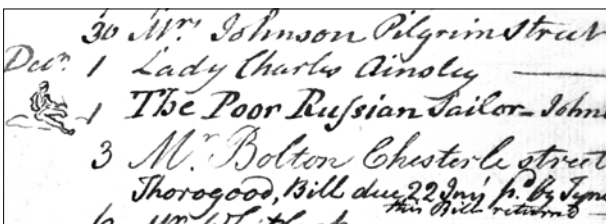 30 Mrs Johnson Pilgrim Street
Decr. 1 Lady Charles Ainsley
1 The Poor Ruſsian Sailor - John
3 Mr Bolton Chester le street
Thorogood, Bill due 22 Jany pd by
this Bill returned